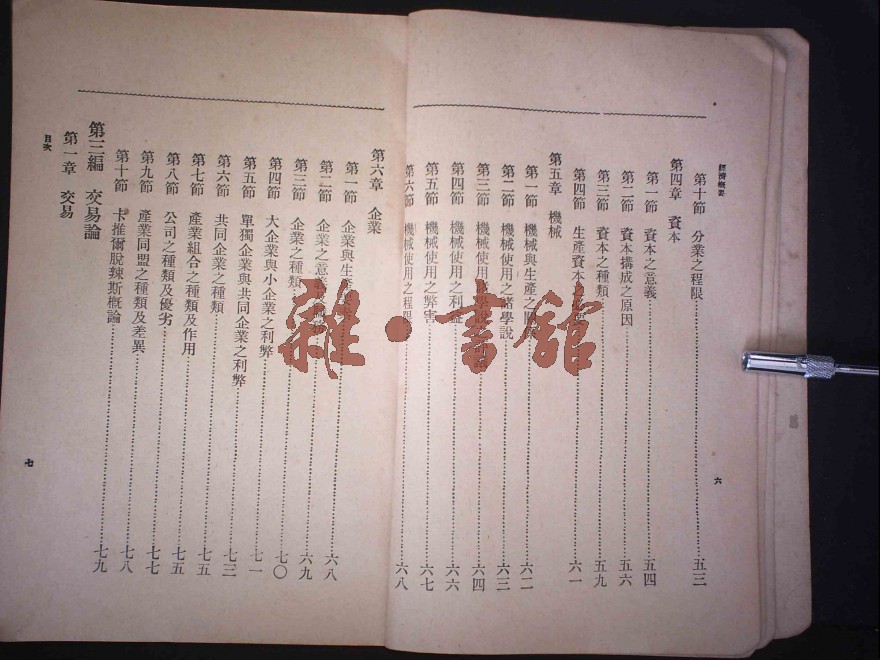 經濟概要
第十節 分業之程限 五三
第四章 資本
第一節 資本之意義 五四
第二節 資本搆成之原因 五六
第三節 資本之種類 五九
第四節 生產資本 六一
第五章 機械
第一節 機械與生產之關 六二
第二節 機械使用之諸學說 六三
第三節 機械使用 六四
第四節 機械使用之利益 六六
第五節 機械使用之弊害 六七
第六節 機械使用之程限 六八
六
第六章 企業
第一節 企業與生產 六八
第二節 企業之意義 六九
第三節 企業之種類
第四節 大企業與小企業之利弊 七〇
第五節 單獨企業與共同企業之利弊 七一
第六節 共同企業之種類 七三
第七節 產業組合之種類及作用 七五
第八節 公司之種類及優劣 七五
第九節 產業同盟之種類及差異 七七
第十節 卡推爾脫辣斯概論 七八
第三編 交易論 七九
第一章 交易
目次
七
雜·書館